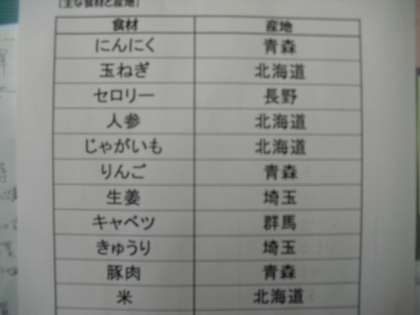 [主な食材と産地]
食材 産地
にんにく 青森
玉ねぎ 北海道
セロリー 長野
人参 北海道
じゃがいも 北海道
りんご 青森
生姜 埼玉
キャベツ 群馬
きゅうり 埼玉
豚肉 青森
米 北海道